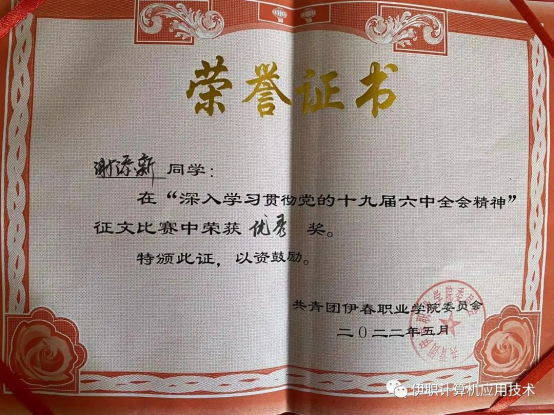 荣誉证书
谢添新 同学：
在“深入学习贯彻党的十九届六中全会精神”
征文比赛中荣获 优秀 奖。
特颁此证，以资鼓励。
共青团伊春职业学院委员会
二〇二二年五月
伊职计算机应用技术